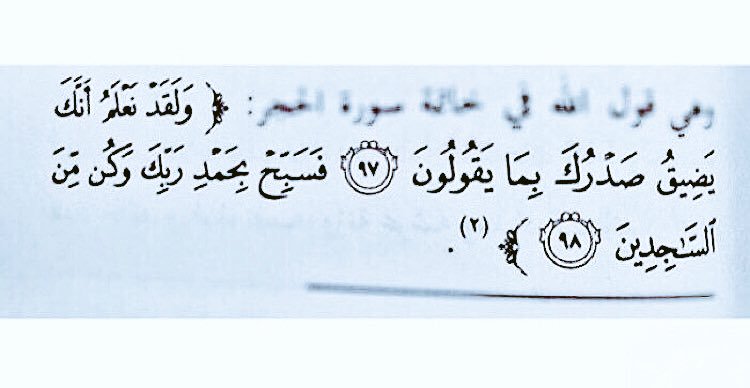 وهي قول الله في خاتمة سورة الحجر: ﴿ وَلَقَدْ نَعْلَمُ أَنَّكَ
يَضِيقُ صَدْرُكَ بِمَا يَقُولُونَ ۝٩٧ فَسَبِّحْ بِحَمْدِ رَبِّكَ وَكُن مِّنَ
ٱلسَّٰجِدِينَ ۝٩٨ ﴾ (٢).